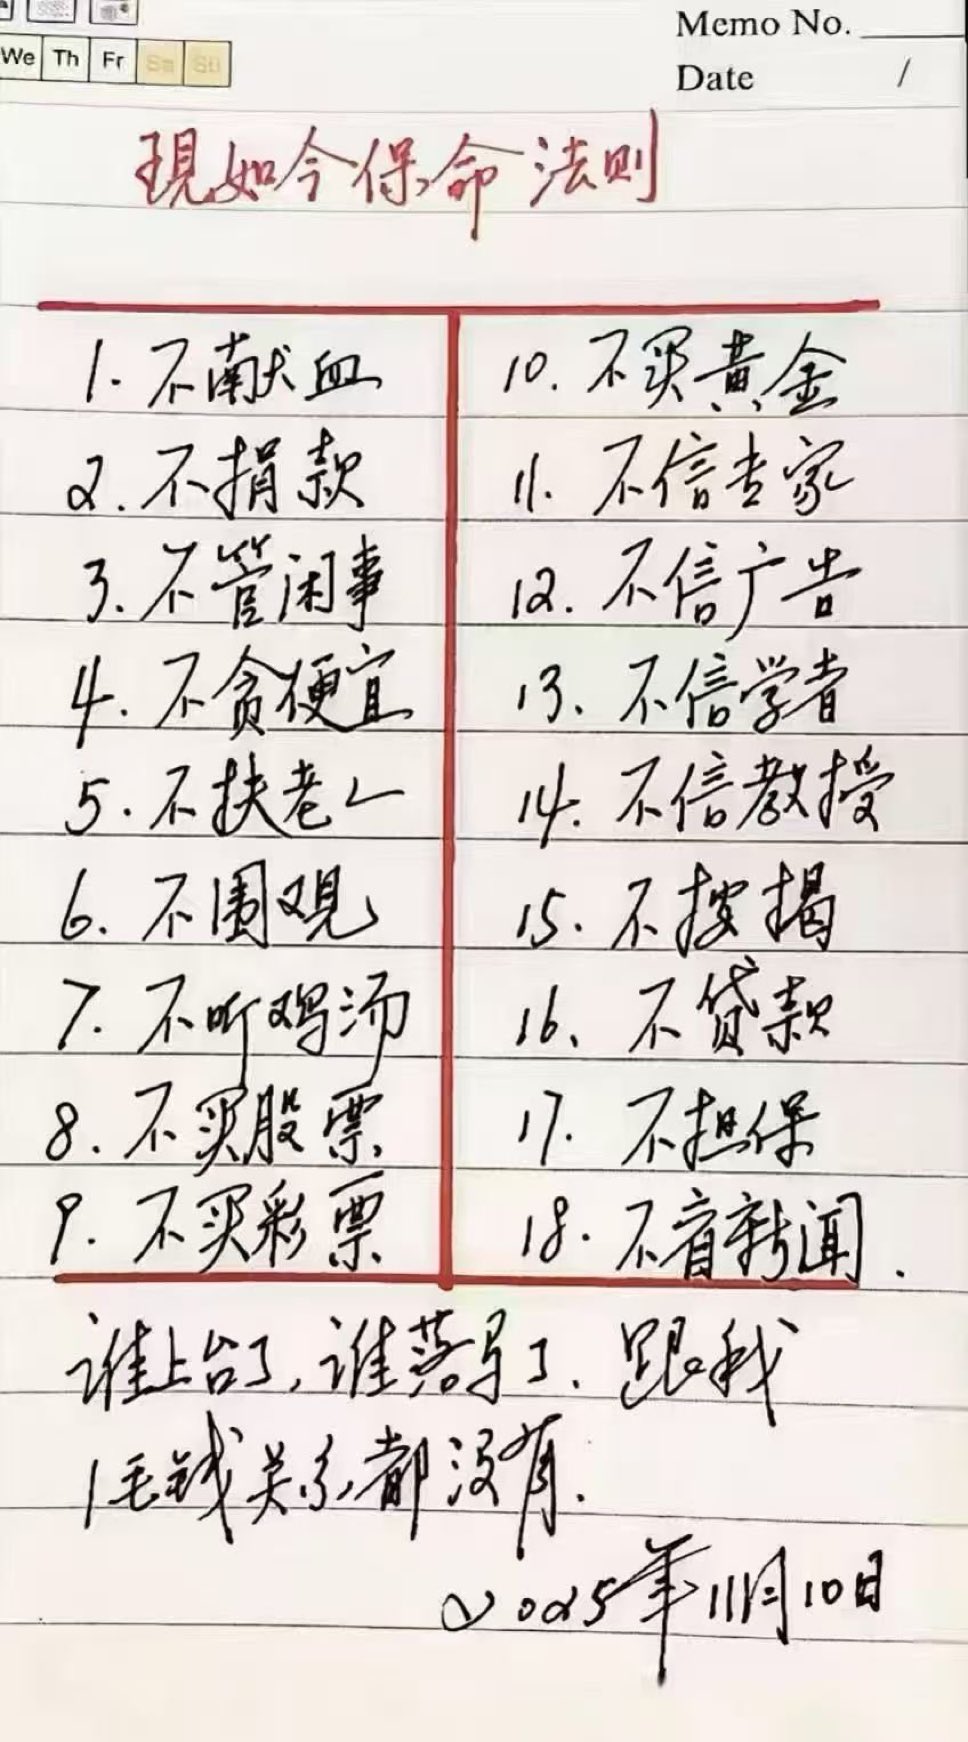 Memo No.
We Th Fr Sa Su
Date /
現如今保命法则
1. 不献血
2. 不捐款
3. 不管闲事
4. 不贪便宜
5. 不扶老人
6. 不围观
7. 不听鸡汤
8. 不买股票
9. 不买彩票
10. 不买黄金
11. 不信专家
12. 不信广告
13. 不信学者
14. 不信教授
15. 不按揭
16. 不贷款
17. 不担保
18. 不看新闻.
谁上台了, 谁落马了、跟我
1毛钱关系都没有.
2025年11月10日